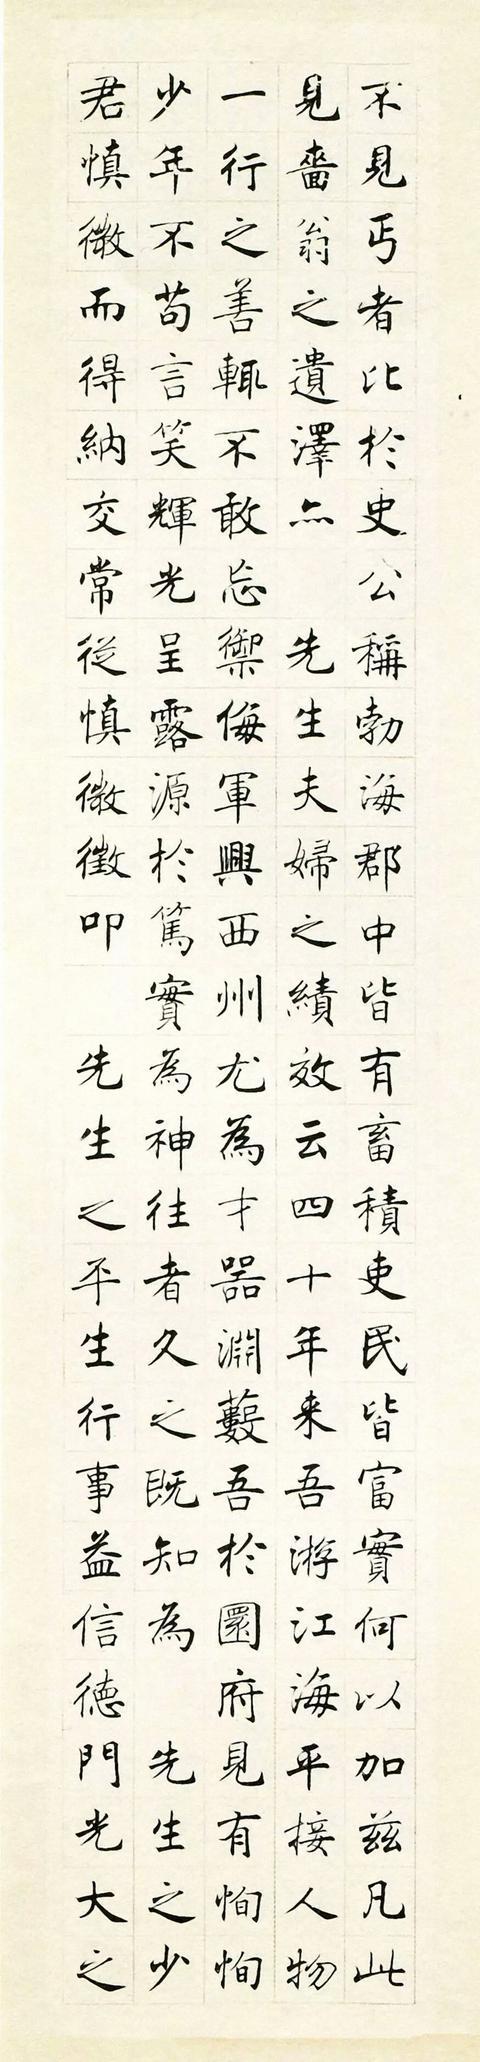 不見丐者比於史公稱勃海郡中皆有畜積吏民皆富實何以加茲凡此
見嗇翁之遺澤亦先生夫婦之績效云四十年来吾游江海平接人物
一行之善輒不敢忘禦侮軍興西州尤為才器淵藪吾於圜府見有恂恂
少年不苟言笑輝光呈露源於篤實為神往者久之既知為先生之少
君慎微而得納交常從慎微徵叩先生之平生行事益信德門光大之